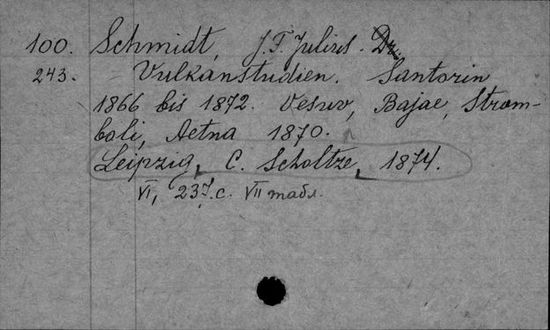 100. Schmidt, J. F. Julius. Dr.
243. Vulkanstudien. Santorin
1866 bis 1872. Vesuv, Bajae, Strom-
boli, Aetna 1870.
Leipzig, C. Scholtze, 1874.
VI, 237. с. VII табл.